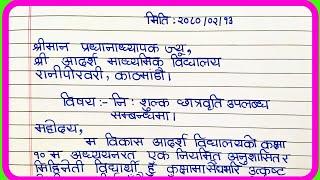 मिति : २०८०/०२/१३
श्रीमान प्रधानाध्यापक ज्यू,
श्री आदर्श माध्यमिक विद्यालय
रानीपोखरी, काठमाडौं ।
विषय :- नि : शुल्क छात्रवृति उपलब्ध
सम्बन्धमा ।
महोदय,
म विकास आदर्श विद्यालयको कक्षा
१० मा अध्ययनरत एक नियमित अनुशासित र
विद्यार्थी हुँ कक्षामा उत्कृष्ट